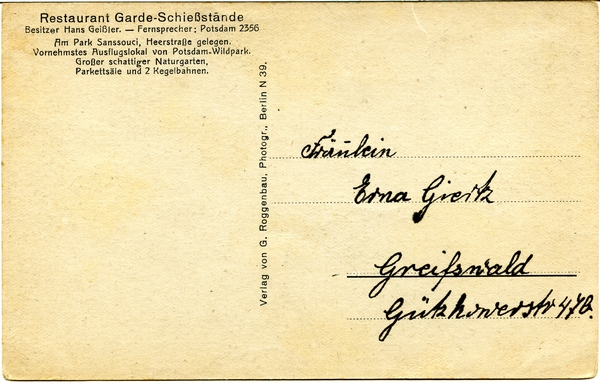 Restaurant Garde-Schießstände
Besitzer Hans Geißler. — Fernsprecher: Potsdam 2356
Am Park Sanssouci, Heerstraße gelegen.
Vornehmstes Ausflugslokal von Potsdam-Wildpark.
Großer schattiger Naturgarten,
Parkettsäle und 2 Kegelbahnen.
Verlag von G. Roggenbau, Photogr., Berlin N 39.
Fräulein
Erna Giertz
Greifswald
Gützkowerstr